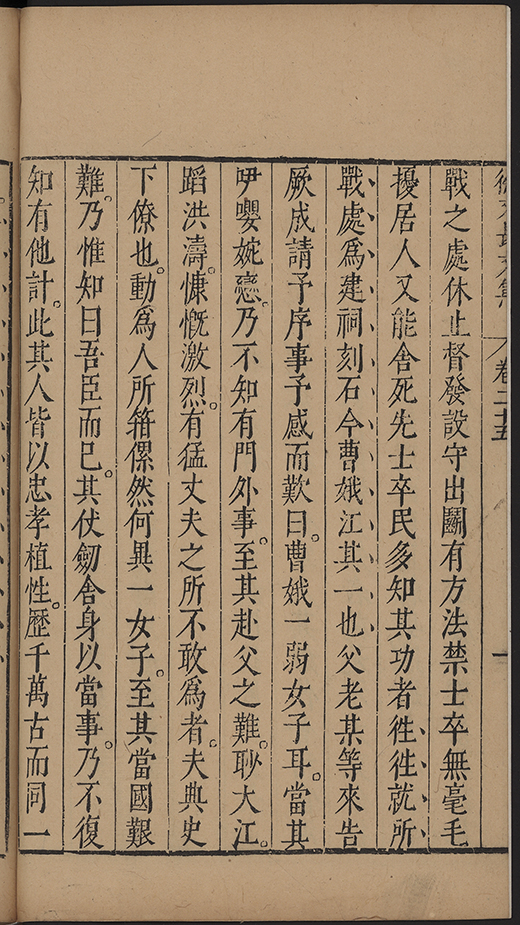 徐文長文集 卷二十五 一
戰之處休止督發設守出鬭有方法禁士卒無毫毛
擾居人又能舍死先士卒民多知其功者徃徃就所
戰處爲建祠刻石今曹娥江其一也父老某等來告
厥成請予序事予感而歎曰。曹娥一弱女子耳。當其
吚嚶婉戀。乃不知有門外事。至其赴父之難。眇大江。
蹈洪濤。慷慨激烈。有猛丈夫之所不敢爲者。夫典史
下僚也。動爲人所箝傫然何異一女子。至其當國艱
難。乃惟知曰吾臣而已。其仗劒舍身以當事。乃不復
知有他計。此其人皆以忠孝植性。歷千萬古而同一